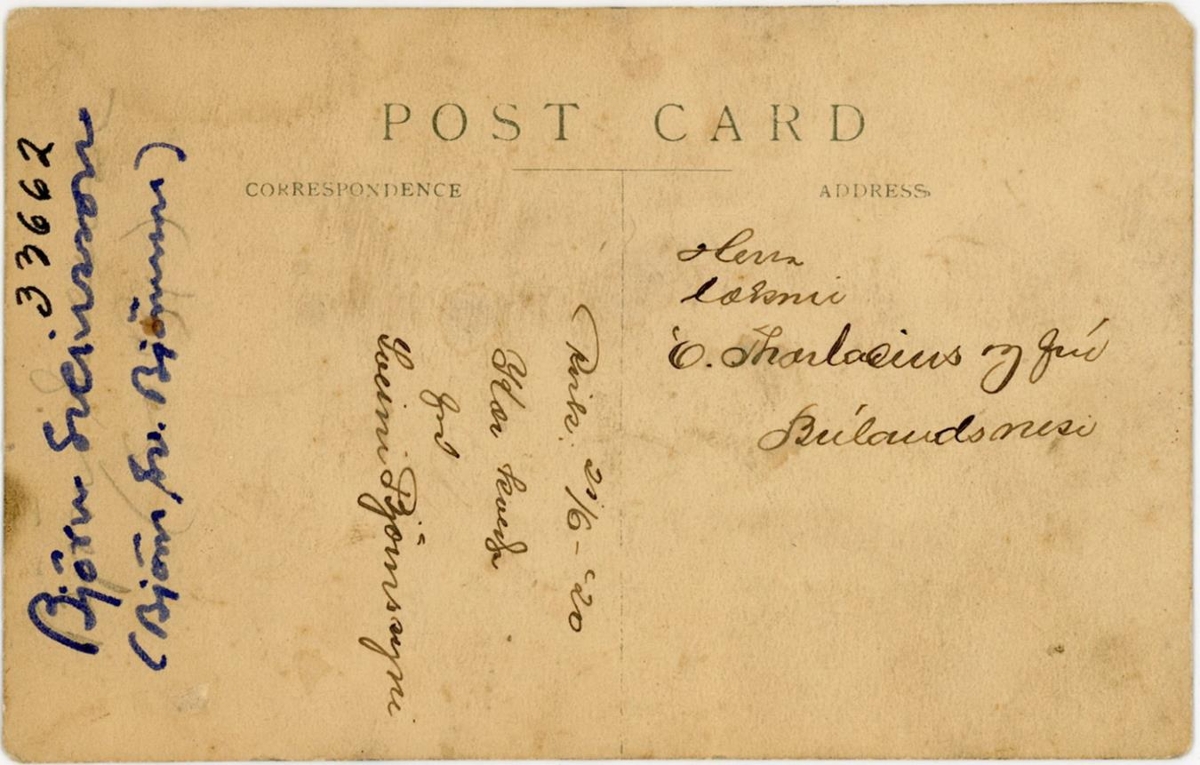 POST CARD
CORRESPONDENCE
ADDRESS
Herra
lækni
Ó. Thorlacius og frú
Búlandsnesi
Rvík. 21/6 - '20
Kær kveðja
frá
Sveini Björnssyni
33662
Björn Sveinsson
(Björn Sv. Björnsson)